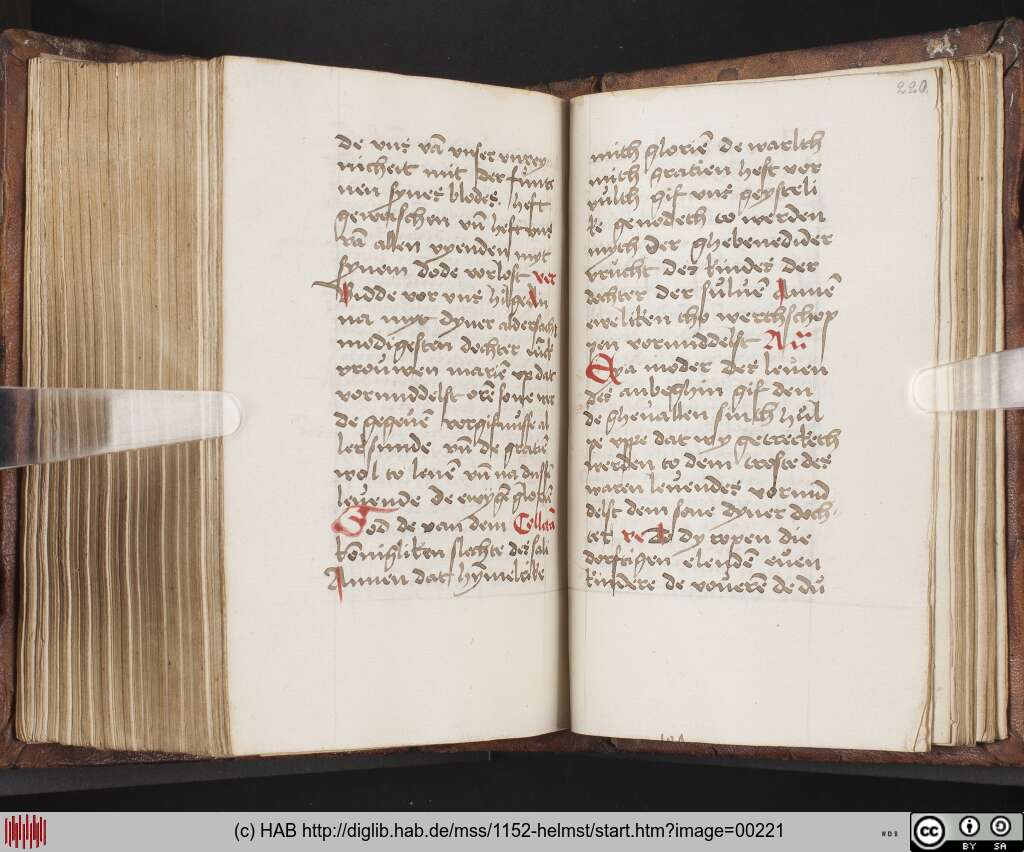 de vns vā vnser vnrey
nicheit mit der funte
nen synes blodes. heft
geweschen vn̄ heft vns
vā allen vyenden myt
synen dode vorlost ver
Bidde vor vns hilge An
na myt dyner alder
modigesten dochter
vrouwen marien vp dat
vormiddelst orē sone
de gegeuē vorgifnisse al
ler sunde vn̄ de gratiē
wol to leuē vn̄ na dussē
leuende de ewygē
God de van dem Collectā
konnigliken slechte der salighen
Annen dat hymmelrike
220
mith gloriē de warlich
mith gratien heft vor
vulth gif vns geysteli
ke genodeth to werden
myth der ghebenedider
vrucht des kindes der
dochter der suluē Annē
eweliken tho werthschop
pen vormiddelst Añ
Eya moder des leuen
des anbeghin gif den
de gheuallen sinth hul
pe vppe dat wy getrecketh
werden to dem troste des
waren leuendes vormid
delst dem sone dyner doch
ter ve To dy ropen die
dorftigen elenden euen
kindere de vouerē de du
(c) HAB http://diglib.hab.de/mss/1152-helmst/start.htm?image=00221
WDB
cc
BY SA